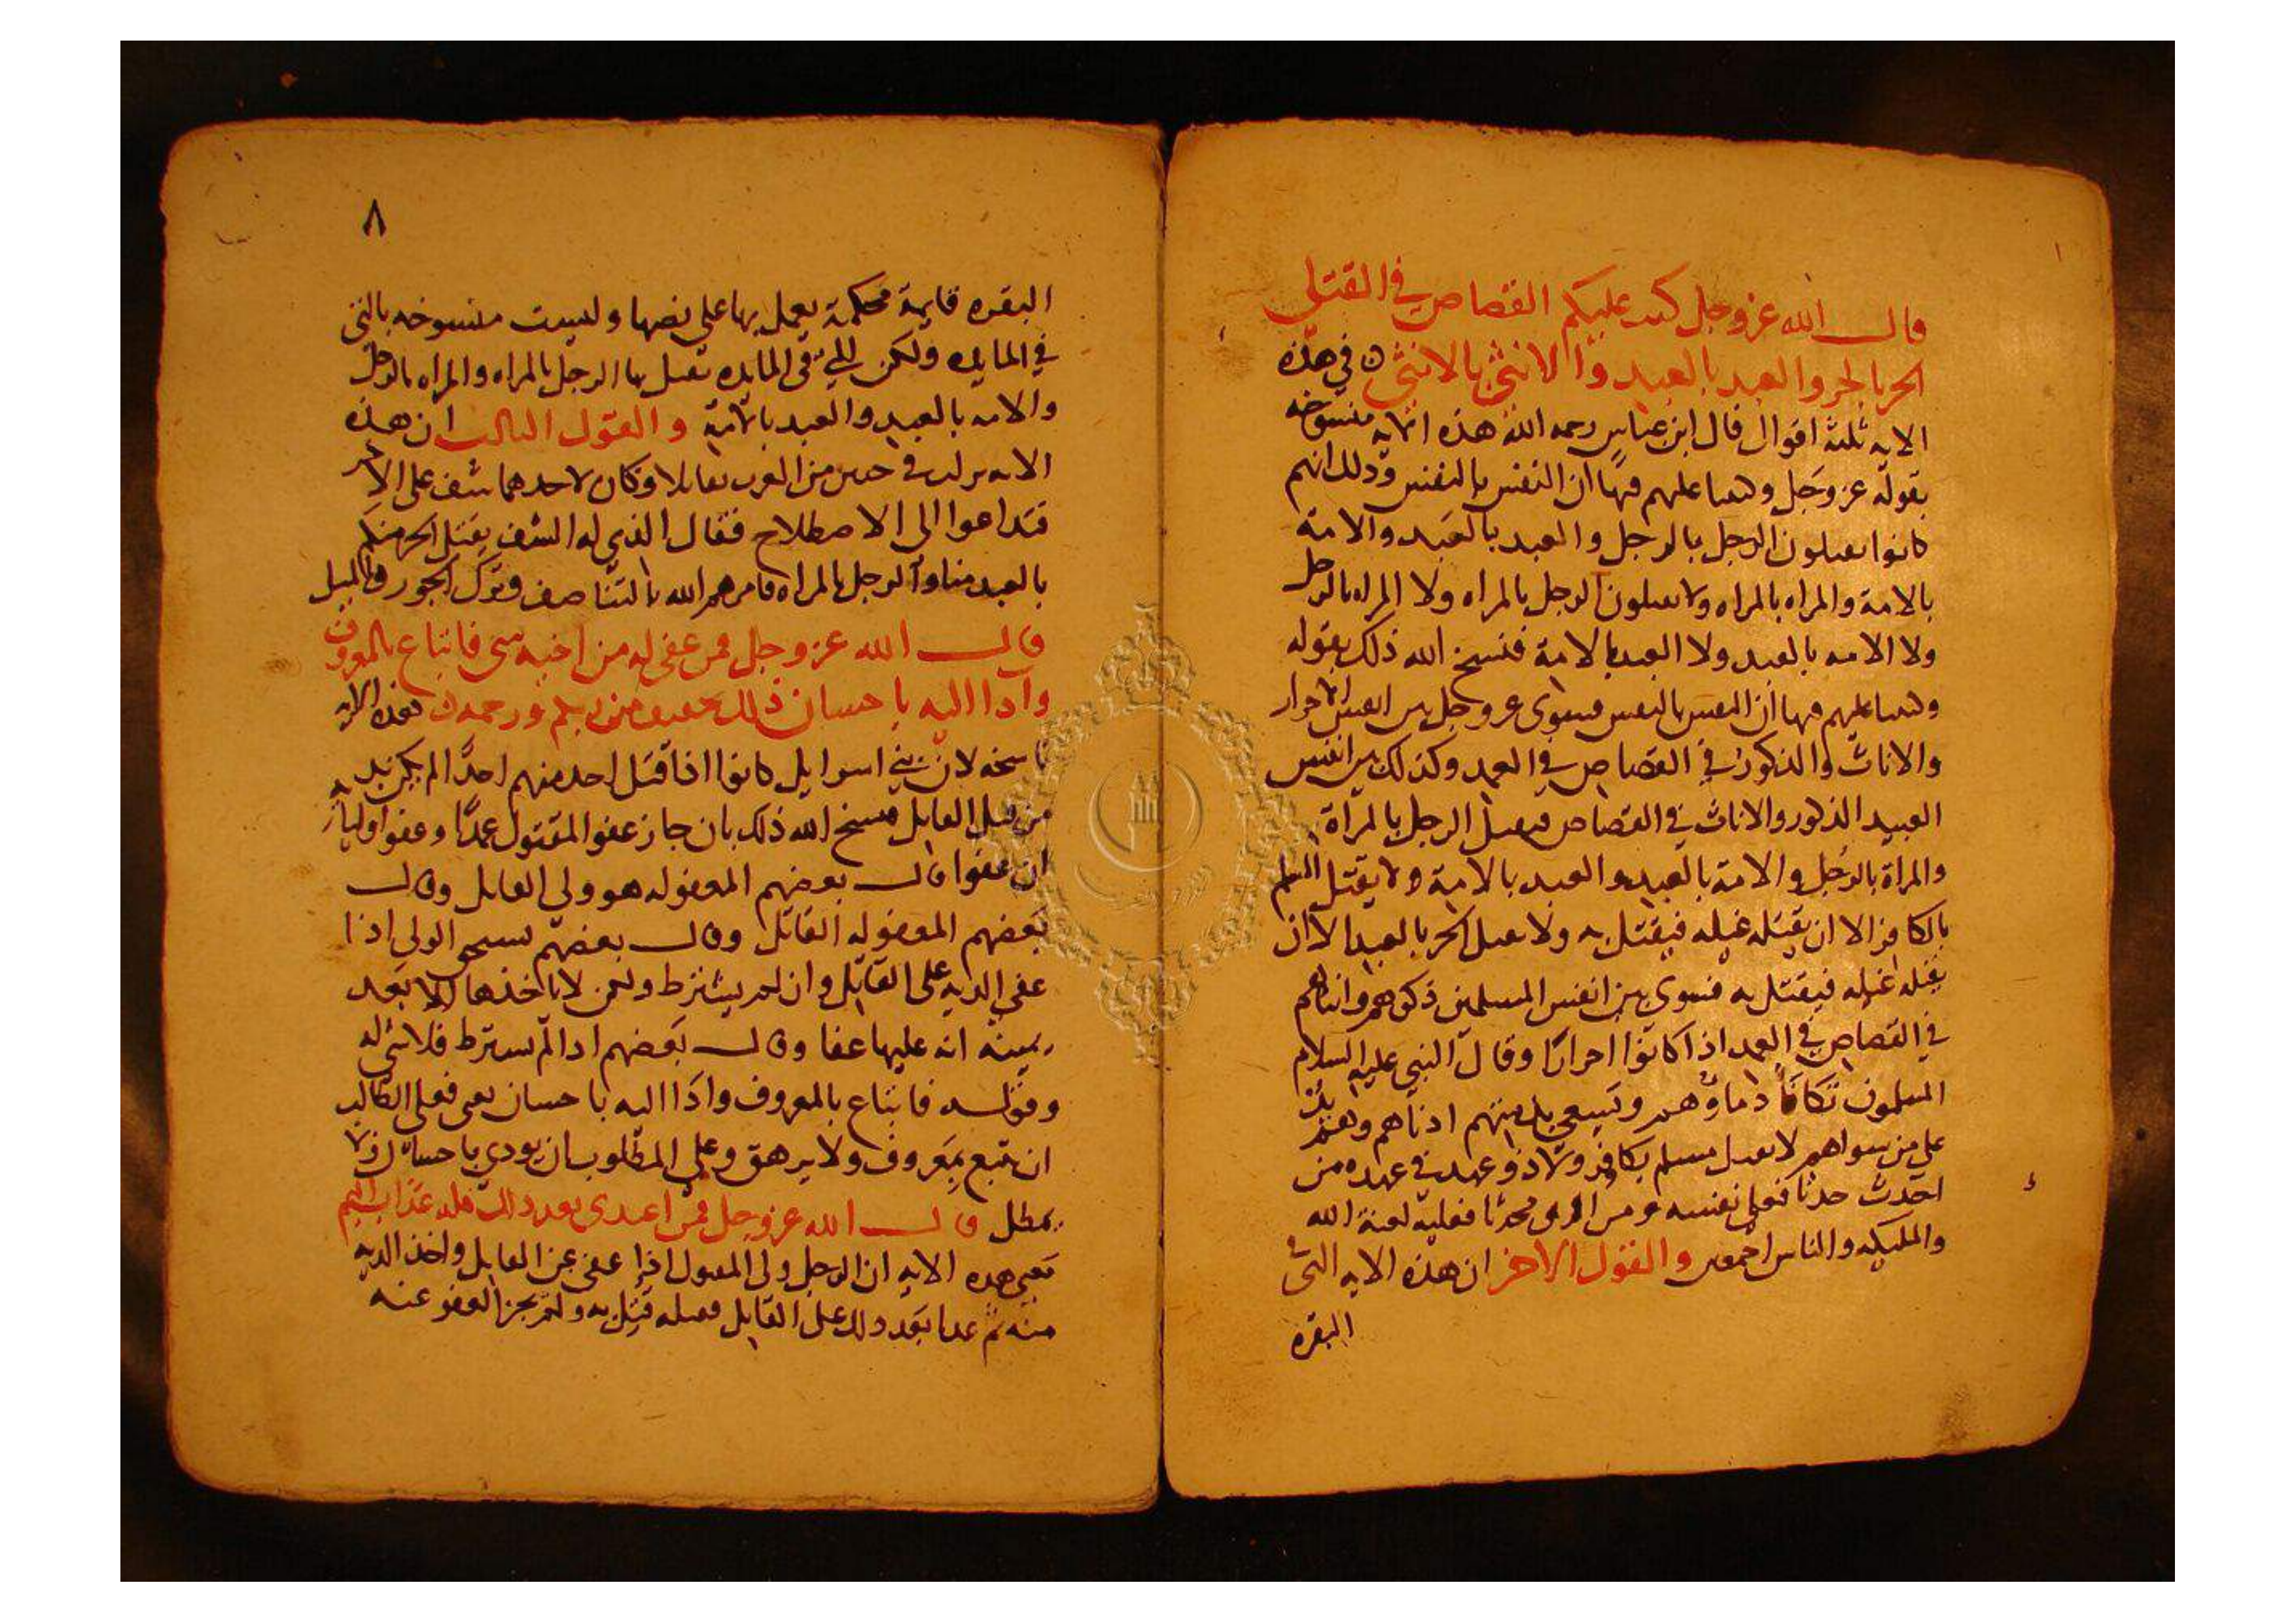 قال الله عز وجل كتب عليكم القصاص في القتلى
الحر بالحر والعبد بالعبد والانثى بالانثى ن في هذه
الايه ثلثة اقوال قال ابن عباس رحمه الله هذه الايه منسوخه
بقوله عز وجل وكتبنا عليهم فيها ان النفس بالنفس وذلك انهم
كانوا يقتلون الرجل بالرجل والعبد بالعبد والامة
بالامة والمراه بالمراه ولا يقتلون الرجل بالمراه ولا المراه بالرجل
ولا الامه بالعبد ولا العبد بالامة فنسخ الله ذلك بقوله
وكتبنا عليهم فيها ان النفس بالنفس فسوى عز وجل بين انفس الاحرار
والاناث والذكور في القصاص في العمد وكذلك بين انفس
العبيد الذكور والاناث في القصاص فيقتل الرجل بالمرأة
والمراة بالرجل والامة بالعبد والعبد بالامة ولا يقتل المسلم
بالكافر الا ان يقتله غيله فيقتل به ولا يقتل الحر بالعبد الا ان
يقتله غيله فيقتل به فسوى بين انفس المسلمين ذكورهم واناثهم
في القصاص في العمد اذا كانوا احرارا وقال النبي عليه السلام
المسلمون تكافأ دماؤهم ويسعى بذمتهم ادناهم وهم يد
على من سواهم لا يقتل مسلم بكافر ولا ذو عهد في عهده من
احدث حدثا فعلى نفسه ومن اوى محدثا فعليه لعنة الله
والمليكه والناس اجمعين والقول الاخر ان هذه الايه التي في
البقره
٨
البقره قايمة محكمة يعمل بها على نصها وليست منسوخه بالتي
في المايده ولكن التي في المايده يقتل بها الرجل بالمراه والمراه بالرجل
والامه بالعبد والعبد بالامة والقول الثالث ان هذه
الايه نزلت في حيين من العرب تقاتلا وكان لاحدهما شف على الاخر
فتداعوا الى الاصطلاح فقال الذي له الشف يقتل الحر منكم
بالعبد منا والرجل بالمراه فامرهم الله بالتناصف وترك الجور والميل
قال الله عز وجل فمن عفي له من اخيه شي فاتباع بالمعروف
واداا اليه باحسان ذلك تخفيف من ربكم ورحمه ن فهذه الايه
ناسخه لان بني اسرايل كانوا اذا قتل احد منهم احدا لم يكن بد
من قتل القاتل فنسخ الله ذلك بان جاز عفو المقتول عمدا وعفو اوليائه
ان عفوا قال بعضهم المعفو له هو ولي القاتل وقال
بعضهم المعفو له القاتل وقال بعضهم يستحق الولي اذا
عفى الديه على القاتل وان لم يشترط ولكن لا ياخذها الا بعد
يمينه انه عليها عفا وقال بعضهم اذا لم يشترط فلا شي له
وقوله فاتباع بالمعروف واداا اليه باحسان يعني فعلى الطالب
ان يتبع بمعروف ولا يرهق وعلى المطلوب ان يودي باحسان ولا
يمطل قال الله عز وجل فمن اعتدى بعد ذلك فله عذاب اليم
يعني هذه الايه ان الرجل ولي المقتول اذا عفى عن القاتل واخذ الديه
منه ثم عدا بعد ذلك على القاتل فقتله قتل به ولم يجز العفو عنه